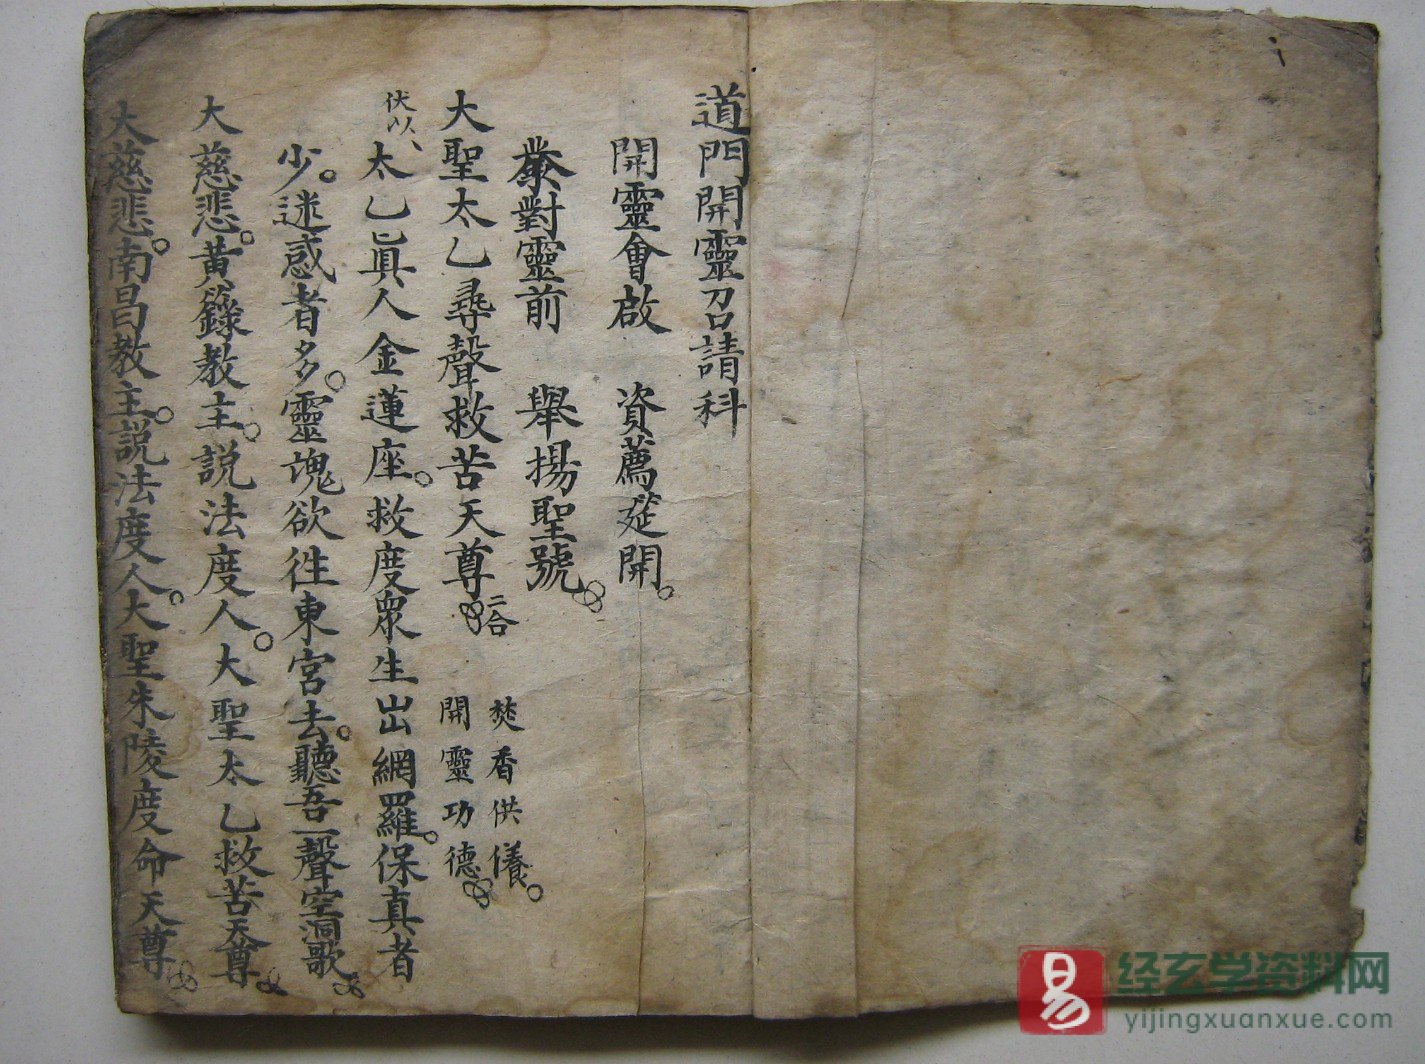 道門開靈召請科
開靈會啟　資薦筵開。
爇對靈前　舉揚聖號。
大聖太乙尋聲救苦天尊 二合 焚香供儀。
開靈功德
伏以、太乙眞人金蓮座。救度眾生出網羅。保真者
少。迷惑者多。靈魂欲徃東宮去。聽吾一聲空洞歌
大慈悲。黃籙教主。説法度人。大聖太乙救苦天尊
大慈悲。南昌教主。説法度人。大聖朱陵度命天尊
易 经玄学资料网
yijingxuanxue.com